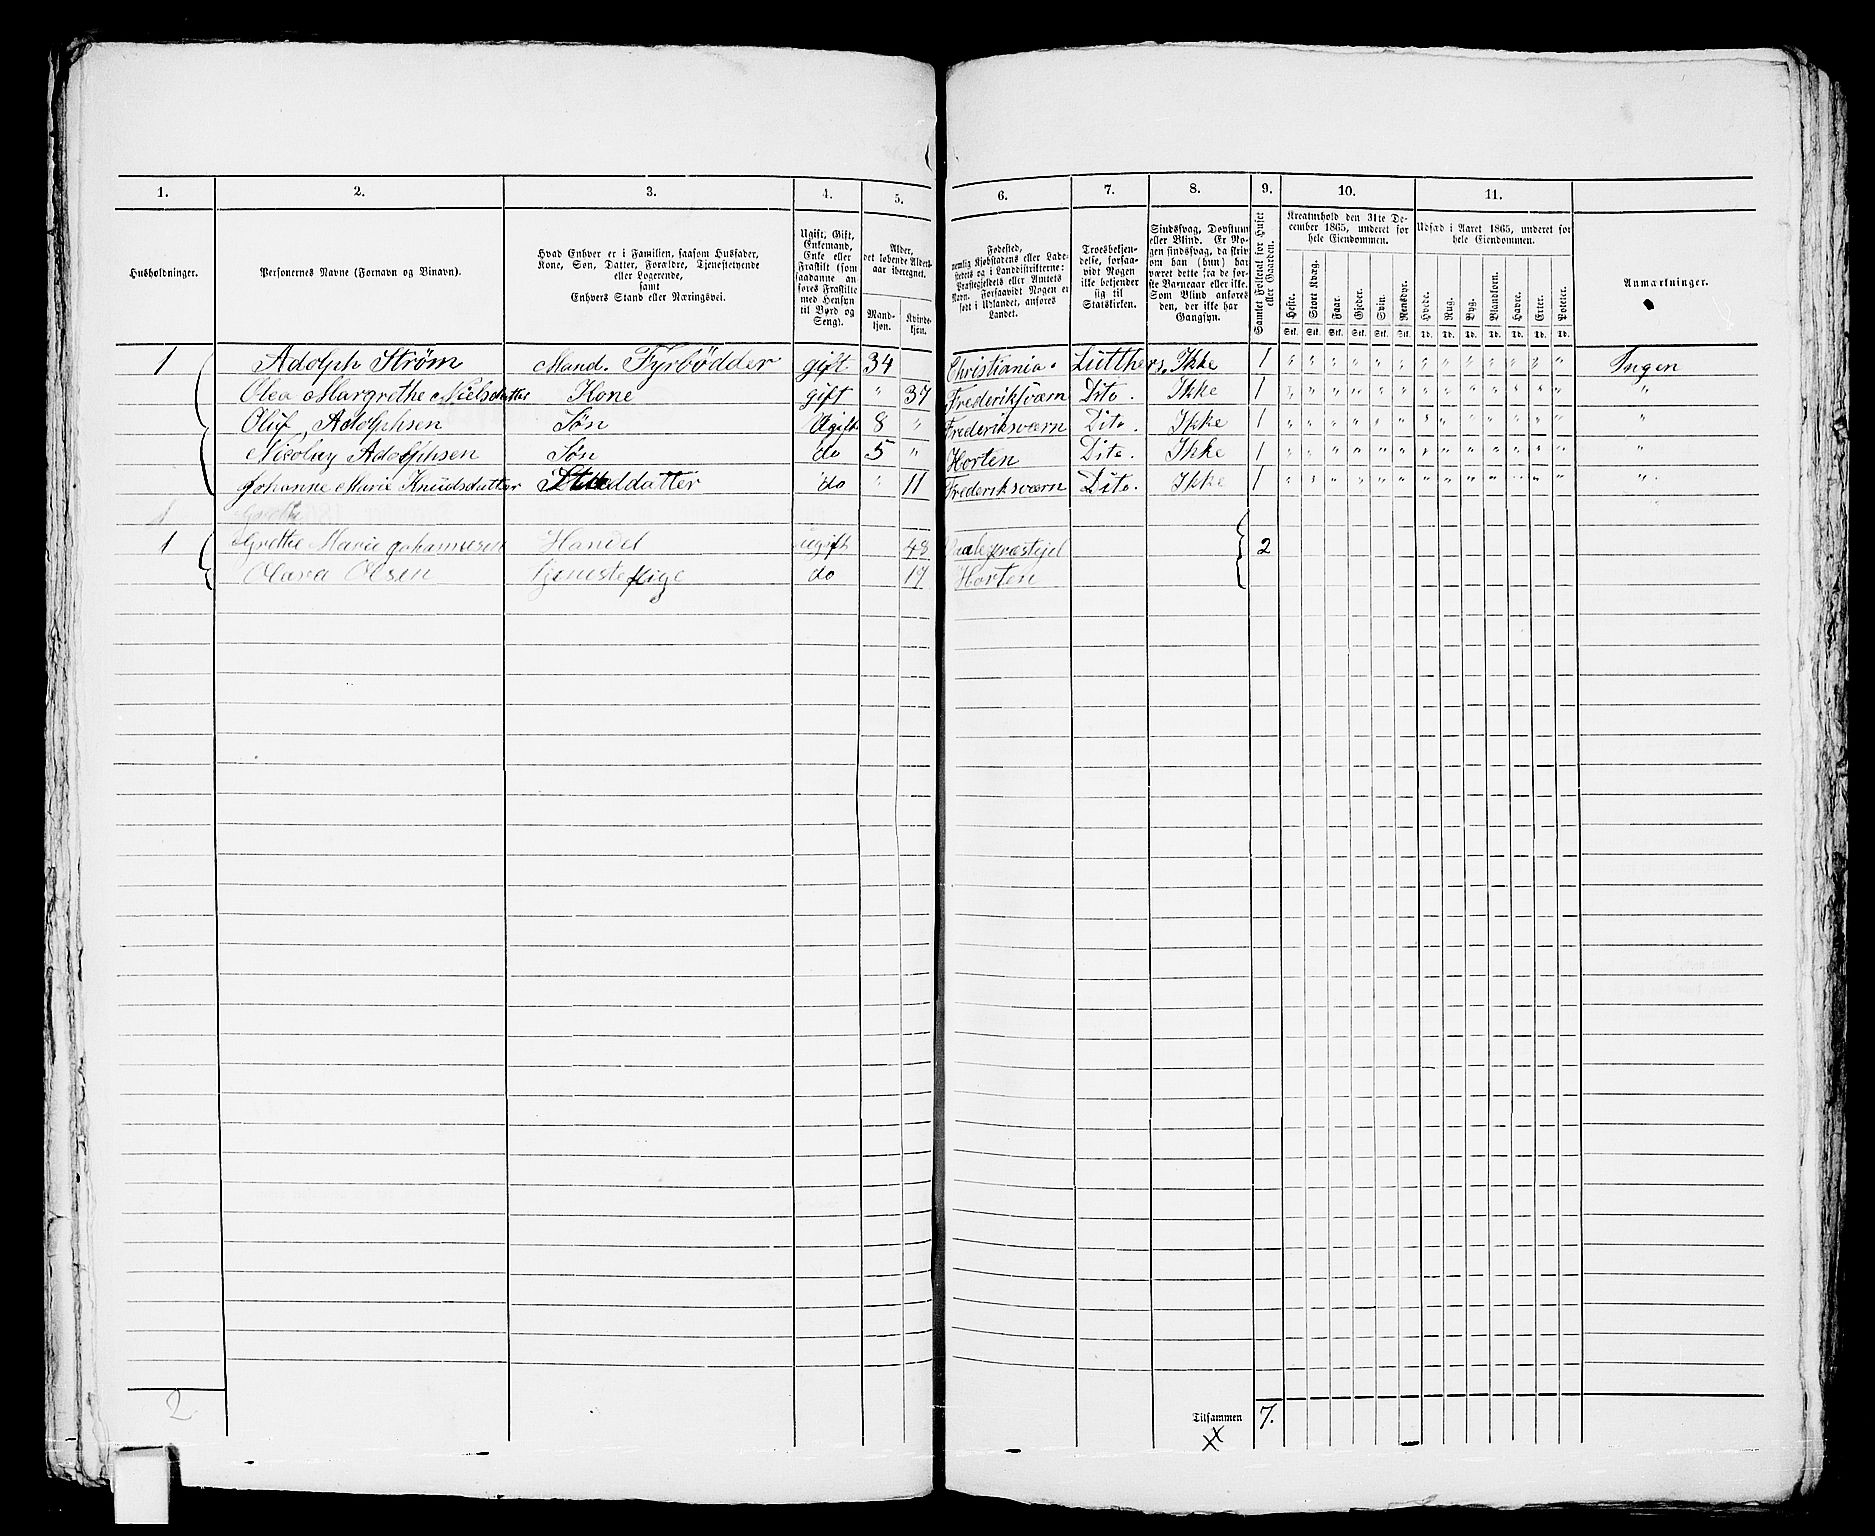 1. 2. 3. 4. 5. 6. 7. 8. 9. 10. 11.
Husholdninger.
Personernes Navne (Fornavn og Binavn).
Hvad Enhver er i Familien, saasom Husfader,
Kone, Søn, Datter, Forældre, Tjenestetyende
eller Logerende,
samt
Enhvers Stand eller Næringsvei.
Ugift, Gift,
Enkemand,
Enke eller
Fraskilt (som
saadanne an-
føres Fraskilte
med Hensyn
til Bord og
Seng).
Alder,
det løbende Alders-
aar iberegnet.
Mand-
kjøn.
Kvinde-
kjøn.
Fødested,
nemlig Kjøbstadens eller Lade-
stedets og i Landdistrikterne:
Præstegjeldets eller Amtets
Navn. Forsaavidt Nogen er
født i Udlandet, anføres
Landet.
Troesbekjen-
delse, forsaa-
vidt Nogen
ikke bekjender
sig til
Statskirken.
Sindssvag, Døvstum
eller Blind. Er No-
gen sindssvag, da skriv
om han (hun) har
været dette fra de før-
ste Barneaar eller ikke.
Som Blind anføres
den, der ikke har
Gangsyn.
Samlet Folketal for Huset
eller Gaarden.
Kreaturhold den 31te De-
cember 1865, underet for
hele Eiendommen.
Heste. Stort Kvæg. Faar. Gjeder. Svin. Rensdyr.
Stk. Stk. Stk. Stk. Stk. Stk.
Udsæd i Aaret 1865, underet for
hele Eiendommen.
Hvede. Rug. Byg. Blandkorn. Havre. Erter. Poteter.
Td. Td. Td. Td. Td. Td. Td.
Anmærkninger.
1 Adolph Strøm Mand. Fyrbödder gift 34 Christiania. Lutthers. Ikke 1 " " " " " " " " " " " " " Ingen
Olea Margrethe Nielsdatter Kone gift " 37 Frederiksværn Dito. Ikke 1 " " " " " " " " " " " " " "
Oluf Adolphsen Søn Ugift 8 " Frederiksværn Dito. Ikke 1 " " " " " " " " " " " " " "
Nicolay Adolphsen Søn do 5 " Horten Dito. Ikke 1 " " " " " " " " " " " " " "
Johanne Marie Knudsdatter Steddatter do " 11 Frederiksværn Dito. Ikke 1 " " " " " " " " " " " " " "
1 Grethe
1 Grethe Marie Johannesen Handel ugift 48 Vaale præstegjel 2
Olava Olsen Tjenestepige do 19 Horten
2
Tilsammen 7.
xx